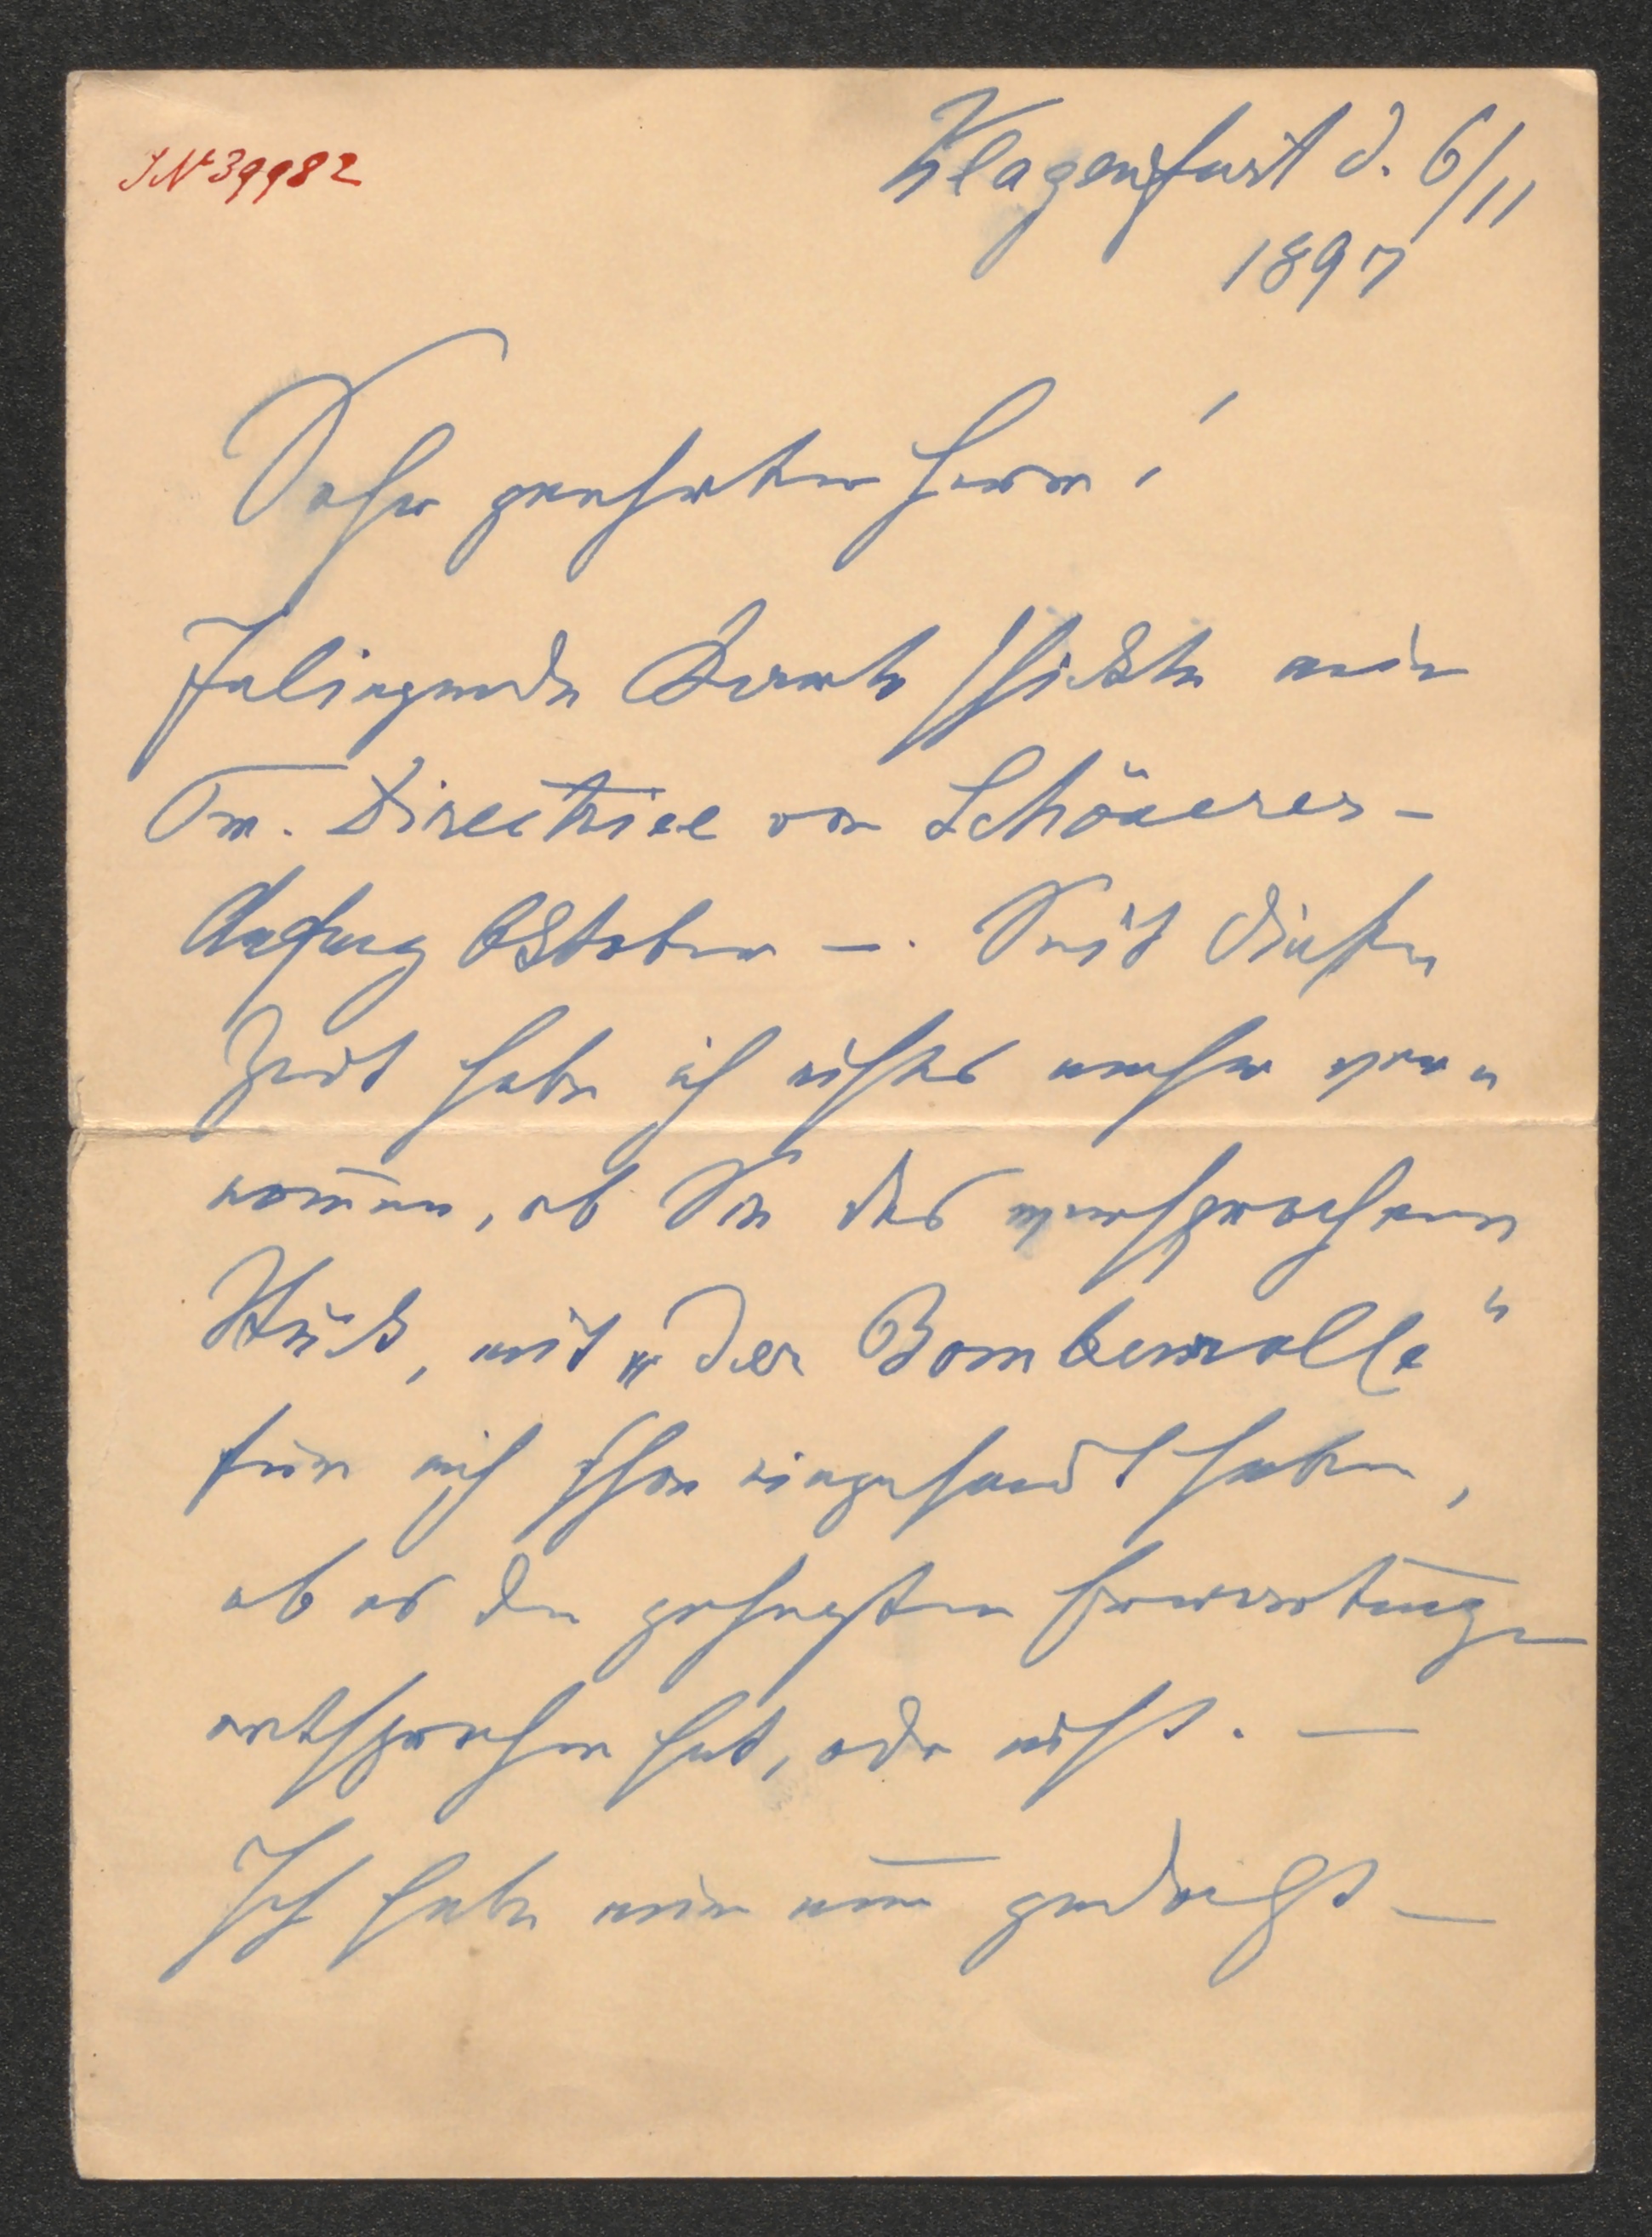 IN 39982
Klagenfurt d. 6/11
1897
Sehr geehrter Herr!
Inliegende Karte schickte mir
Fr. Directrice von Schönerer –
Anfang Oktober –. Seit dieser
Zeit habe ich nichts mehr ver„
nom̄en, ob Sie das versprochene
Stück, mit „der Bombenrolle“
für mich schon eingesandt haben,
ob es den gehegten Erwartungen
entsprochen hat, oder nicht. —
Ich habe mir nun gedacht —